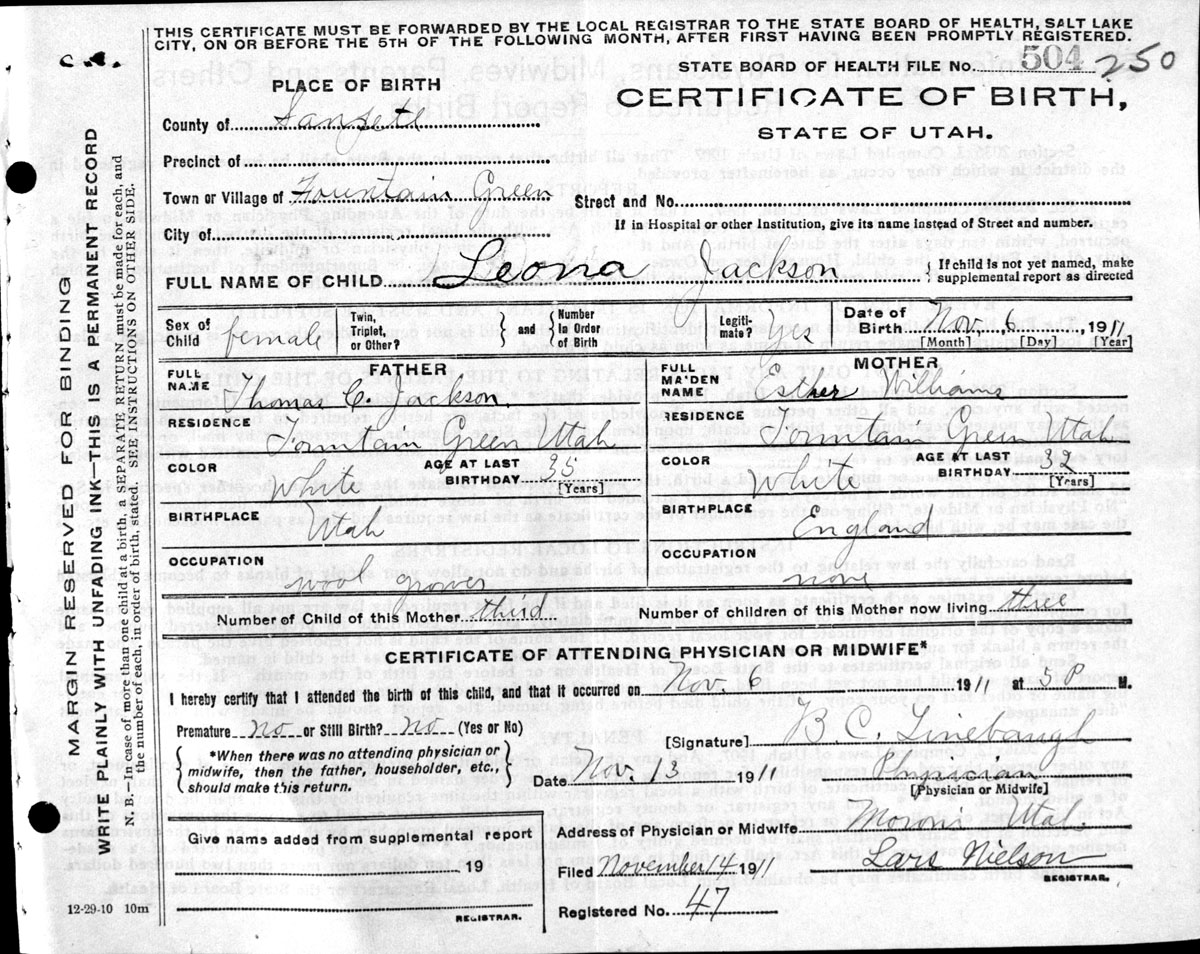 THIS CERTIFICATE MUST BE FORWARDED BY THE LOCAL REGISTRAR TO THE STATE BOARD OF HEALTH, SALT LAKE
CITY, ON OR BEFORE THE 5TH OF THE FOLLOWING MONTH, AFTER FIRST HAVING BEEN PROMPTLY REGISTERED.
STATE BOARD OF HEALTH FILE No. 504 250
PLACE OF BIRTH
CERTIFICATE OF BIRTH,
STATE OF UTAH.
County of Sanpete
Precinct of
Town or Village of Fountain Green
Street and No.
City of
If in Hospital or other Institution, give its name instead of Street and number.
FULL NAME OF CHILD Leona Jackson { If child is not yet named, make
supplemental report as directed
Sex of Child female
Twin, Triplet, or Other?
and { Number in Order of Birth
Legiti-mate? yes
Date of Birth Nov. 6 1911
[Month] [Day] [Year]
FATHER
FULL NAME Thomas C. Jackson
RESIDENCE
Fountain Green Utah
COLOR White
AGE AT LAST BIRTHDAY 35
[Years]
BIRTHPLACE
Utah
OCCUPATION
wool grower
MOTHER
FULL MAIDEN NAME Esther Williams
RESIDENCE
Fountain Green Utah
COLOR White
AGE AT LAST BIRTHDAY 32
[Years]
BIRTHPLACE
England
OCCUPATION
none
Number of Child of this Mother third
Number of children of this Mother now living three
CERTIFICATE OF ATTENDING PHYSICIAN OR MIDWIFE*
I hereby certify that I attended the birth of this child, and that it occurred on Nov. 6 1911 at 3 P M.
Premature no or Still Birth? no (Yes or No)
{ *When there was no attending physician or
midwife, then the father, householder, etc.,
should make this return. }
[Signature] B. C. Linebaugh
Date Nov. 13 1911
Physician
[Physician or Midwife]
Give name added from supplemental report
19
REGISTRAR.
Address of Physician or Midwife Moroni Utah
Filed November 14 1911 Lars Nielson
REGISTRAR.
Registered No. 47
12-29-10 10m
MARGIN RESERVED FOR BINDING
WRITE PLAINLY WITH UNFADING INK—THIS IS A PERMANENT RECORD
N. B.—In case of more than one child at a birth, a SEPARATE RETURN must be made for each, and
the number of each, in order of birth, stated. SEE INSTRUCTIONS ON OTHER SIDE.